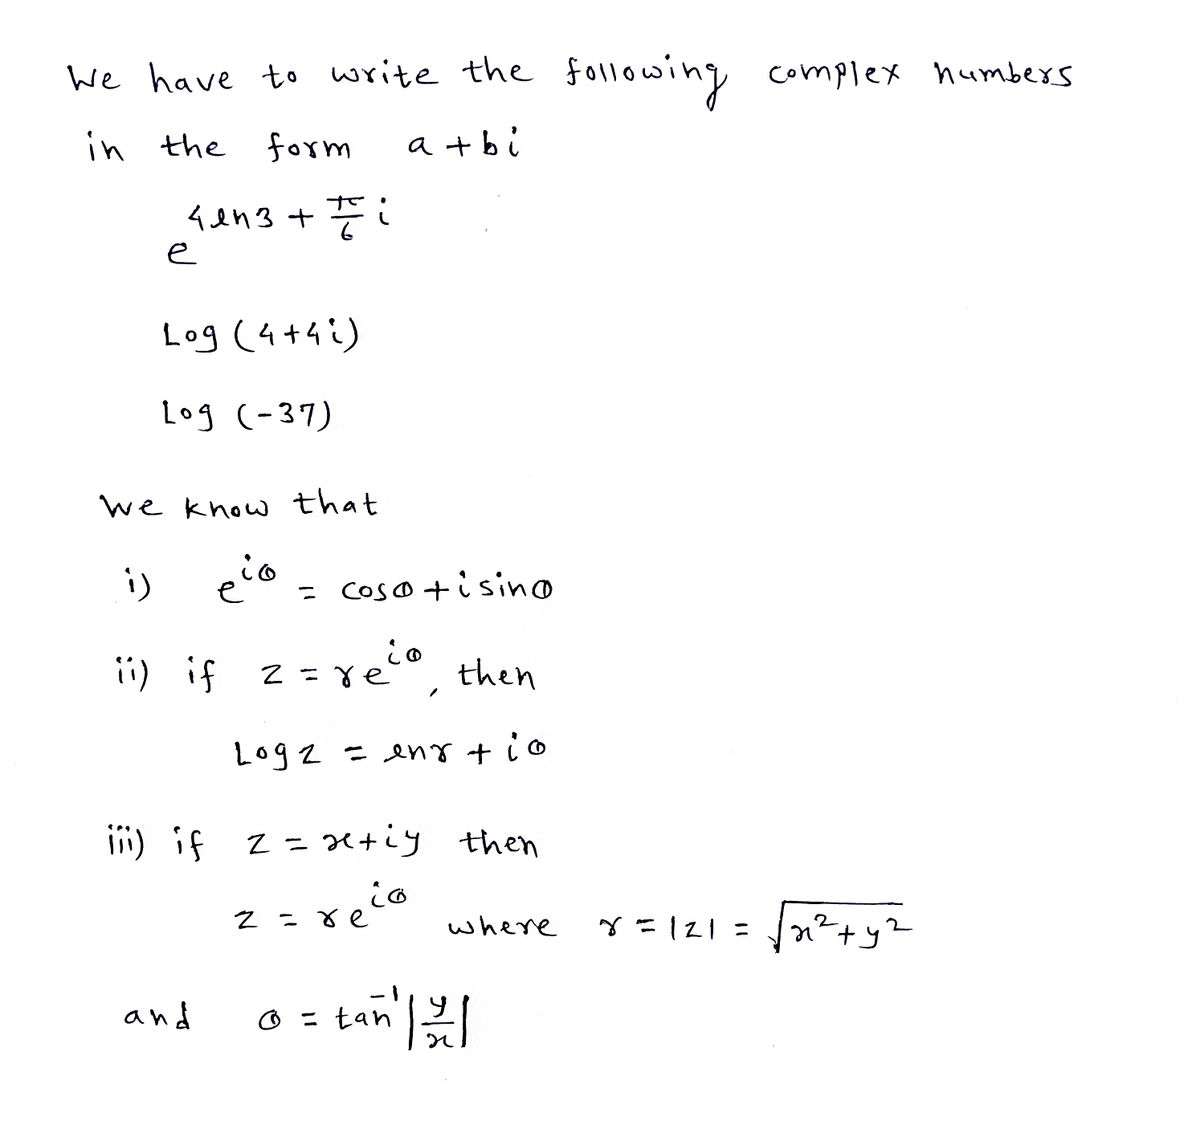 We have to write the following complex numbers
in the form a + bi
e^{4ln3 + π/6 i}
Log (4+4i)
Log (-37)
We know that
i) e^{iθ} = cosθ + i sinθ
ii) if z = re^{iθ}, then
Log z = lnr + iθ
iii) if z = x+iy then
z = re^{iθ} where r = |z| = √(x²+y²)
and θ = tan⁻¹|y/x|